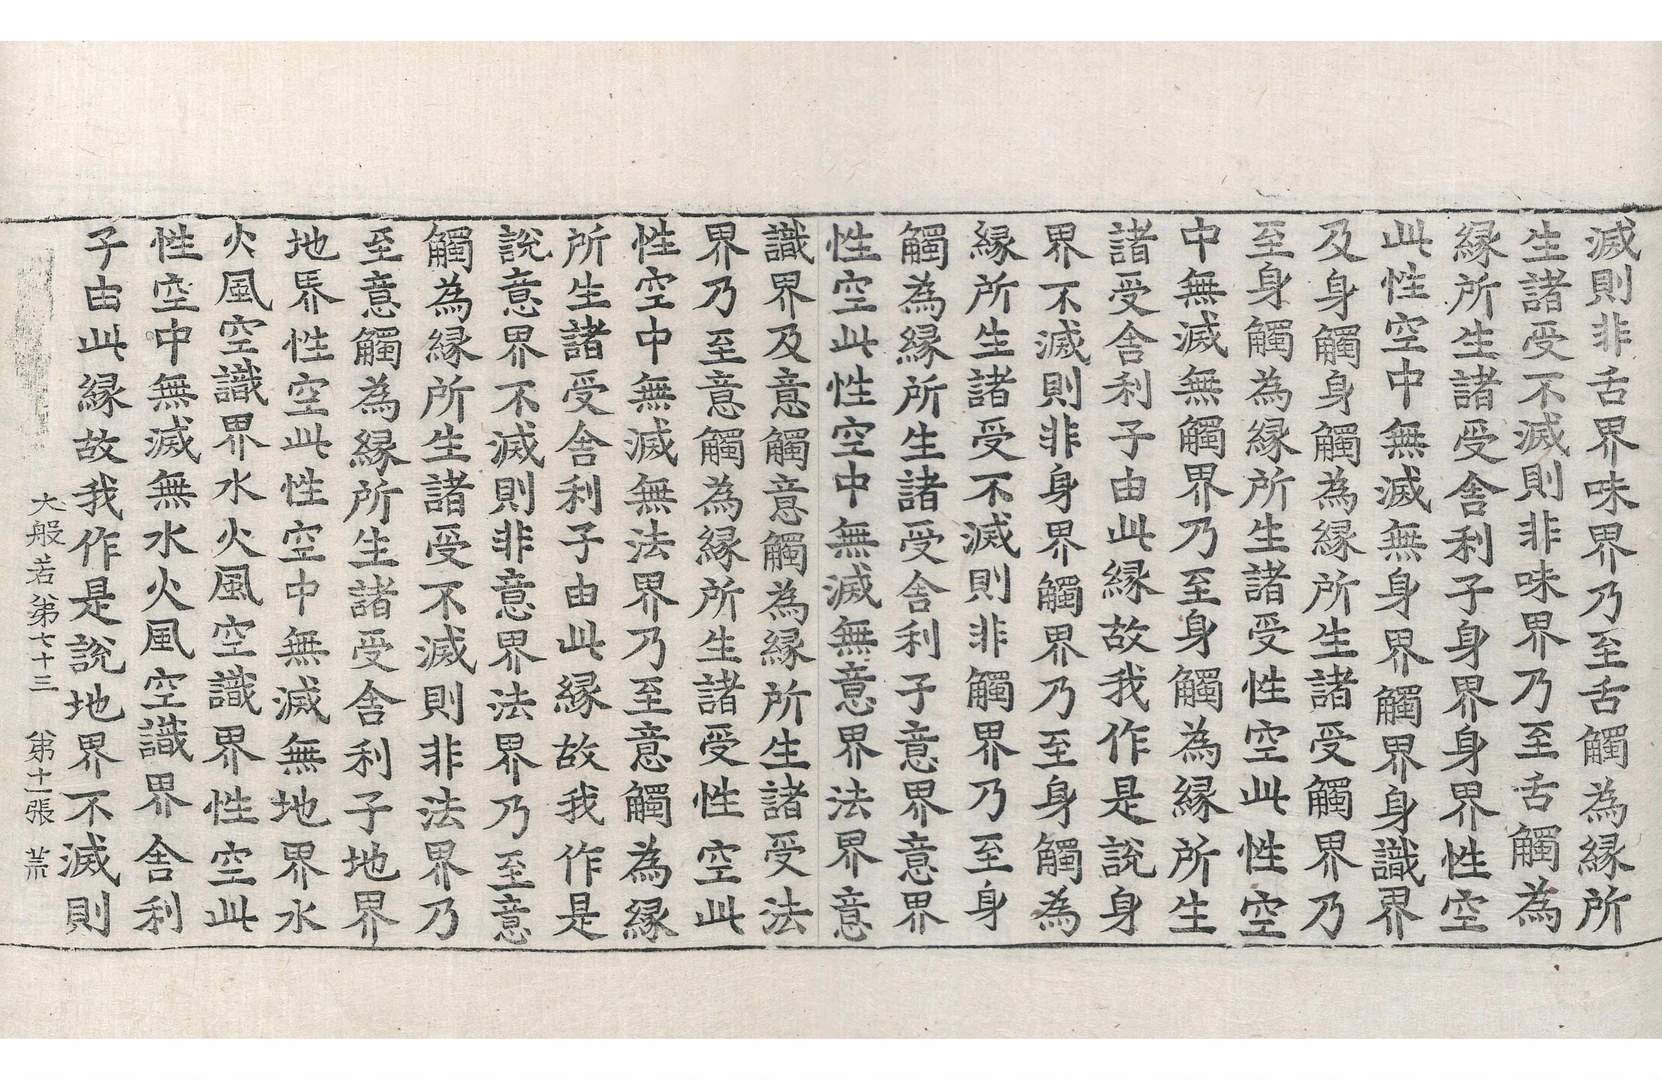 滅則非舌界味界乃至舌觸為縁所
生諸受不滅則非味界乃至舌觸為
縁所生諸受舍利子身界身界性空
此性空中無滅無身界觸界身識界
及身觸身觸為縁所生諸受觸界乃
至身觸為縁所生諸受性空此性空
中無滅無觸界乃至身觸為縁所生
諸受舍利子由此縁故我作是說身
界不滅則非身界觸界乃至身觸為
縁所生諸受不滅則非觸界乃至身
觸為縁所生諸受舍利子意界意界
性空此性空中無滅無意界法界意
識界及意觸意觸為縁所生諸受法
界乃至意觸為縁所生諸受性空此
性空中無滅無法界乃至意觸為縁
所生諸受舍利子由此縁故我作是
說意界不滅則非意界法界乃至意
觸為縁所生諸受不滅則非法界乃
至意觸為縁所生諸受舍利子地界
地界性空此性空中無滅無地界水
火風空識界水火風空識界性空此
性空中無滅無水火風空識界舍利
子由此縁故我作是說地界不滅則
大般若第七十三 第十一張 荒